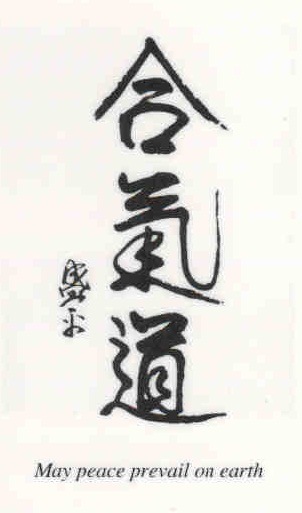 合氣道
盛平
May peace prevail on earth